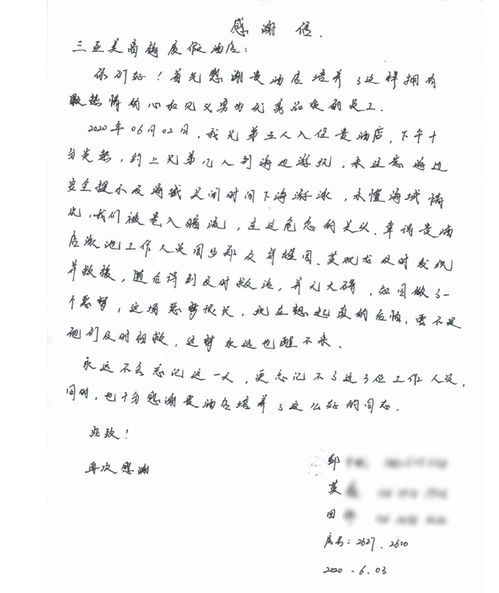 感谢信.
三亚美高梅度假酒店:
你们好!首先感谢贵酒店培养了这样拥有
热情的心和见义勇为优秀品质的员工.
2020年06月02日,我兄弟五人入住贵酒店,下午十
分炎热,约上兄弟几人到海边游玩,未注意海边
安全提示及海域关闭时间下海游泳,未懂海域情
况,我们被卷入暗流,在这危急的关头,幸得贵酒
店泳池工作人员周
及时发现
并救援,随后得到及时救治,并无大碍,如同做了一
个恶梦,这场恶梦很久,现在想起真的后怕,要不是
他们及时相救,这梦永远也醒不来.
永远不会忘记这一天,更忘记不了这3位工作人员,
同时,也十分感谢贵酒店培养了这么好的同志.
此致!
再次感谢
邹
莫
田
房号:2627.2620
2020-6.03